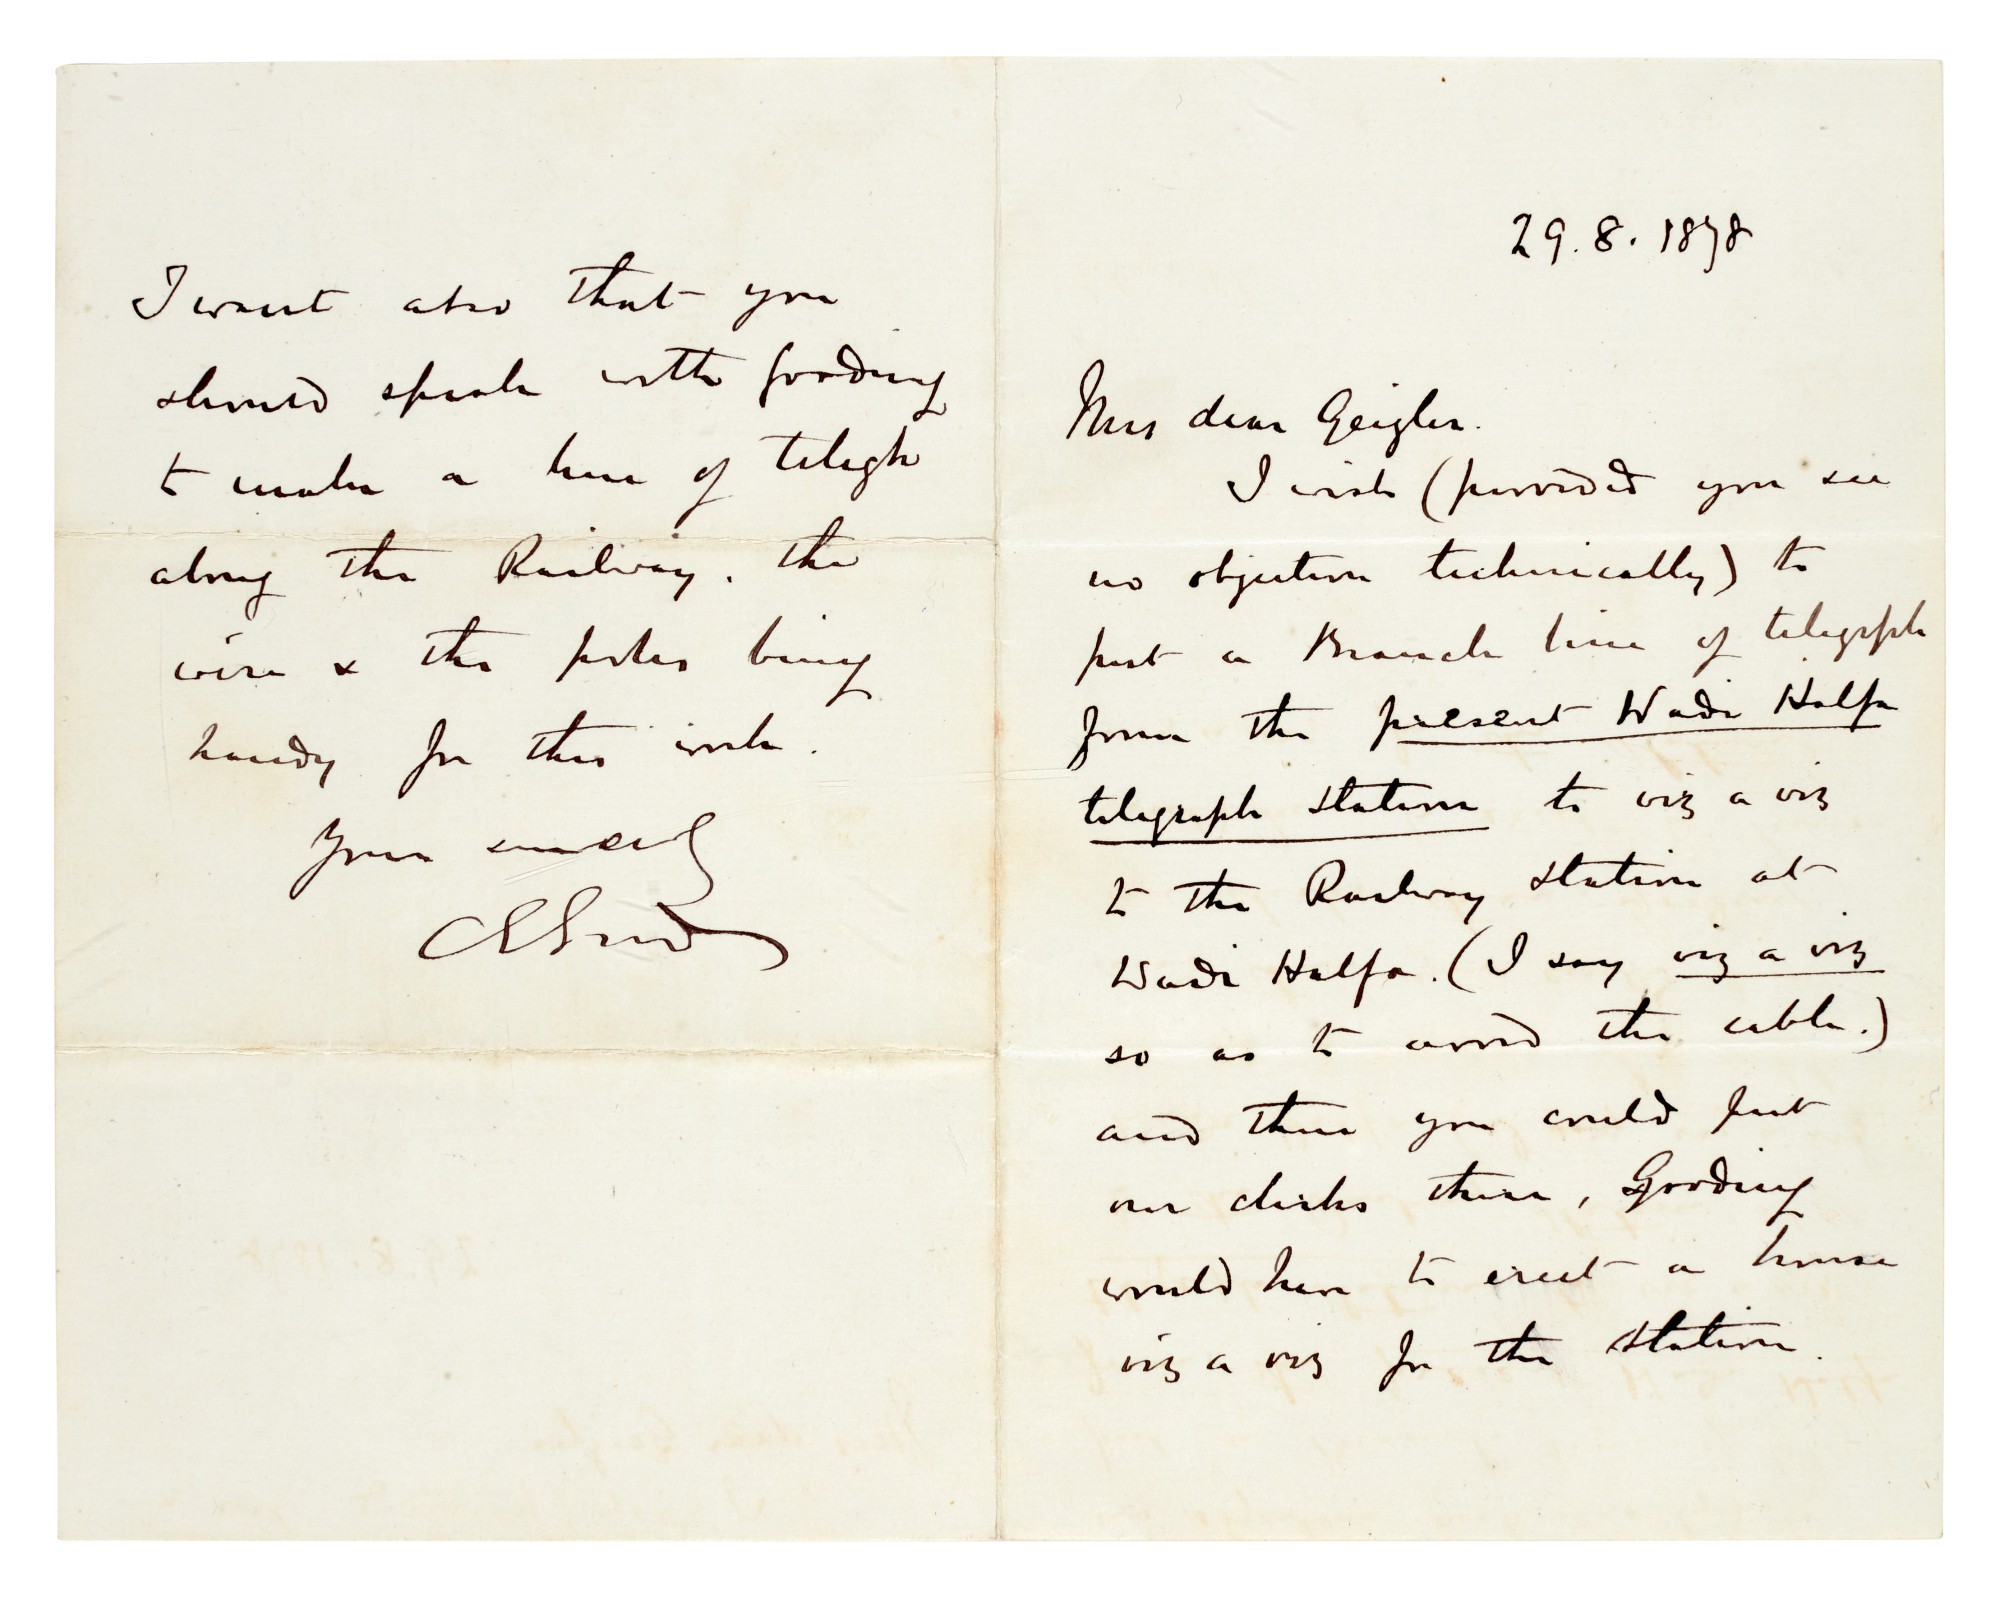 29.8.1878
My dear Geigler.
I wish (provided you see
no objection technically) to
put a Branch line of telegraph
from the present Wadi Halfa
telegraph station to viz a viz
to the Railway station at
Wadi Halfa. (I say viz a viz
so as to avoid the cable.)
and then you could put
our clerks there, Gooding
would have to erect a house
viz a viz for the station.
I want also that you
should speak with Gooding
to make a line of telegh
along the Railway. the
wire & the poles being
handy for this work.
Yours sincerely